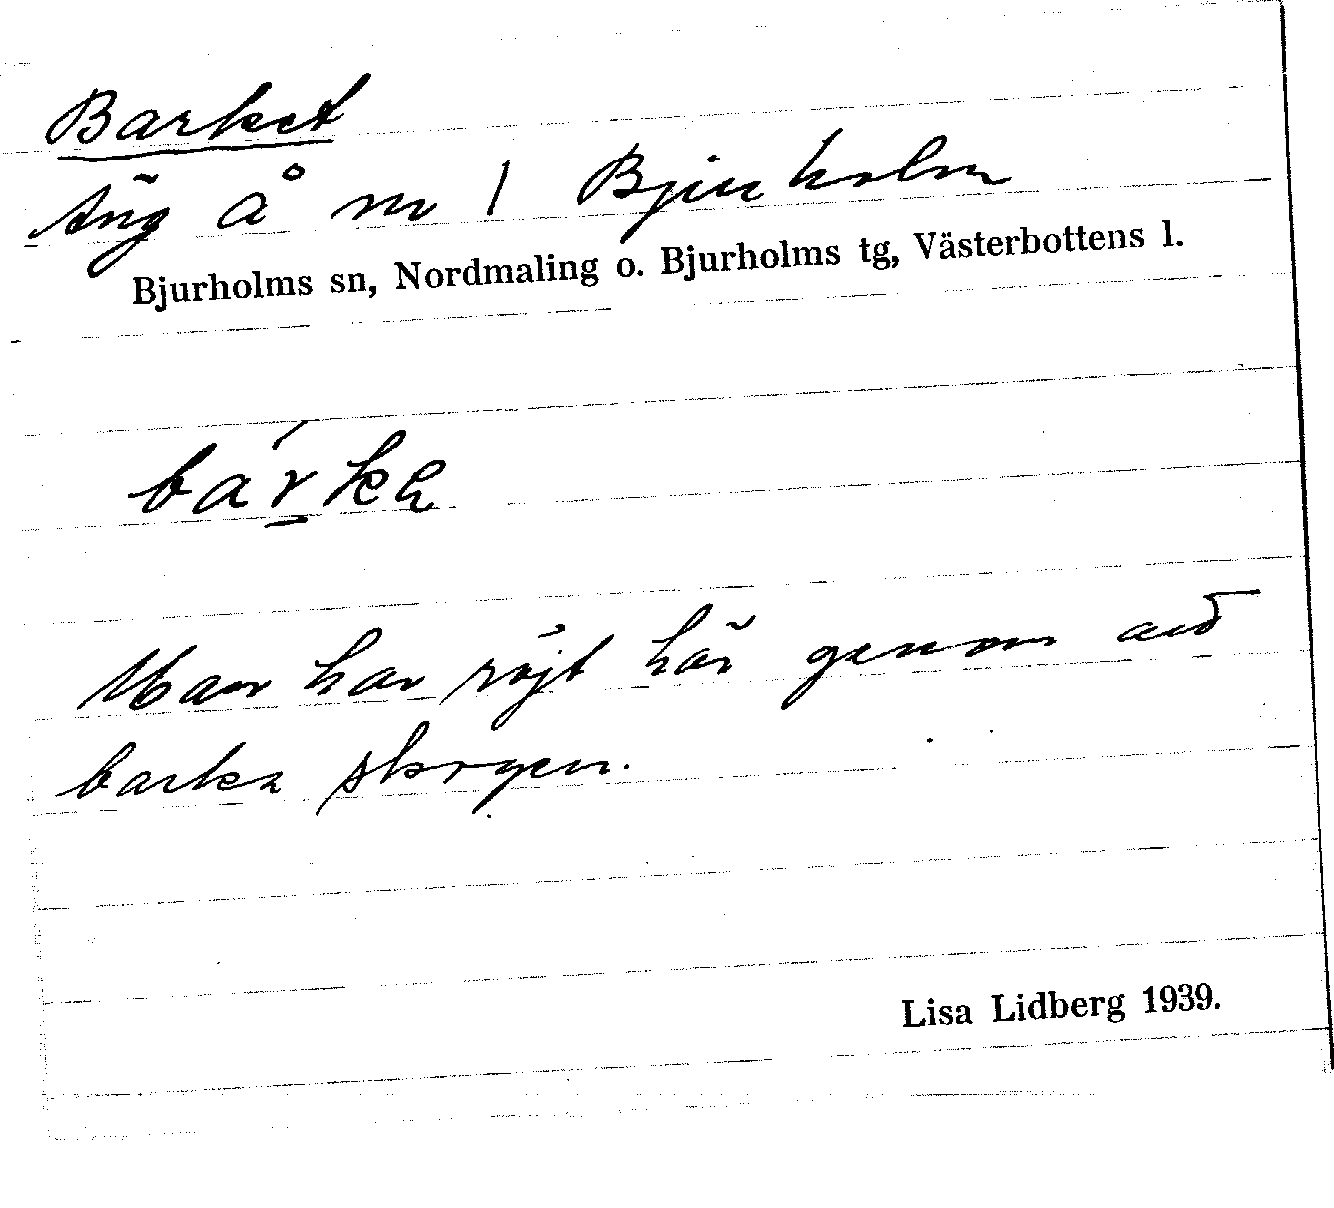 Barket
Äng å nr 1 Bjurholm
Bjurholms sn, Nordmaling o. Bjurholms tg, Västerbottens l.
Man har röjt här genom att
barka skogen.
Lisa Lidberg 1939.